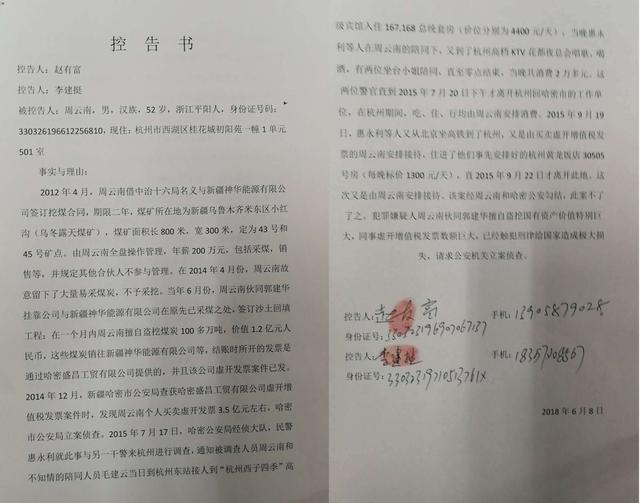 控 告 书
控告人：赵有富
控告人：李建挺
被控告人：周云南，男，汉族，52 岁，浙江平阳人，身份证号码：
330326196612256810，现住：杭州市西湖区桂花城初阳苑一幢 1 单元
501 室
事实与理由：
2012 年 4 月，周云南借中治十六局名义与新疆神华能源有限公
司签订挖煤合同，期限二年，煤矿所在地为新疆乌鲁木齐米东区小红
沟（乌冬露天煤矿），煤矿面积长 800 米，宽 300 米，定为 43 号和
45 号矿点。由周云南全盘操作管理，年薪 200 万元，包括采煤，销
售等，并规定其他合伙人不参与管理。在 2014 年 4 月份，周云南故
意留下了大量易采煤炭，不予采挖。当年 6 月份，周云南伙同郭建华
挂靠公司与新疆神华能源有限公司在原先已采煤之处，签订沙土回填
工程；在一个月内周云南擅自盗挖煤炭 100 多万吨，价值 1.2 亿元人
民币，这些煤炭销往新疆神华能源有限公司等，结账时所开的发票是
通过哈密盛昌工贸有限公司提供的，并且该公司虚开发票案件已发。
2014 年 12 月，新疆哈密市公安局查获哈密盛昌工贸有限公司虚开增
值税发票案件时，发现周云南个人买卖虚开发票 3.5 亿元左右，哈密
市公安局立案侦查。2015 年 7 月 17 日，哈密公安局经侦大队，民警
惠永利就此事与另一干警来杭州进行调查，通知被调查人员周云南和
不知情的陪同人员毛建云当日到杭州东站接人到“杭州西子四季”高
级宾馆入住 167,168 总统套房（价位分别为 4400 元/天），当晚惠永
利等人在周云南的陪同下，又到了杭州高档 KTV 花都夜总会唱歌、喝
酒，有两位坐台小姐陪同、直至零点结束，当晚共消费 2 万多元。这
两位警官直到 2015 年 7 月 20 日下午才离开杭州回哈密市的工作单
位，在杭州期间，吃、住、行均由周云南安排消费。2015 年 9 月 19
日，惠永利等人又从北京坐高铁到了杭州，又是由买卖虚开增值税发
票的周云南安排接待，住进了他们事先安排好的杭州黄龙饭店 30505
号房（每晚标价 1300 元/天），直 2015 年 9 月 22 日才离开此地。这
次又是由周云南安排接待。该案经周云南和哈密公安勾结，此案不了
了之。犯罪嫌疑人周云南伙同郭建华擅自盗挖国有资产价值特别巨
大，同事虚开增值税发票数额巨大，已经触犯刑律给国家造成极大损
失，请求公安机关立案侦查。
控告人：赵有富 手机：13905879028
身份证号：
控告人：李建挺 手机：
身份证号：
2018 年 6 月 8 日